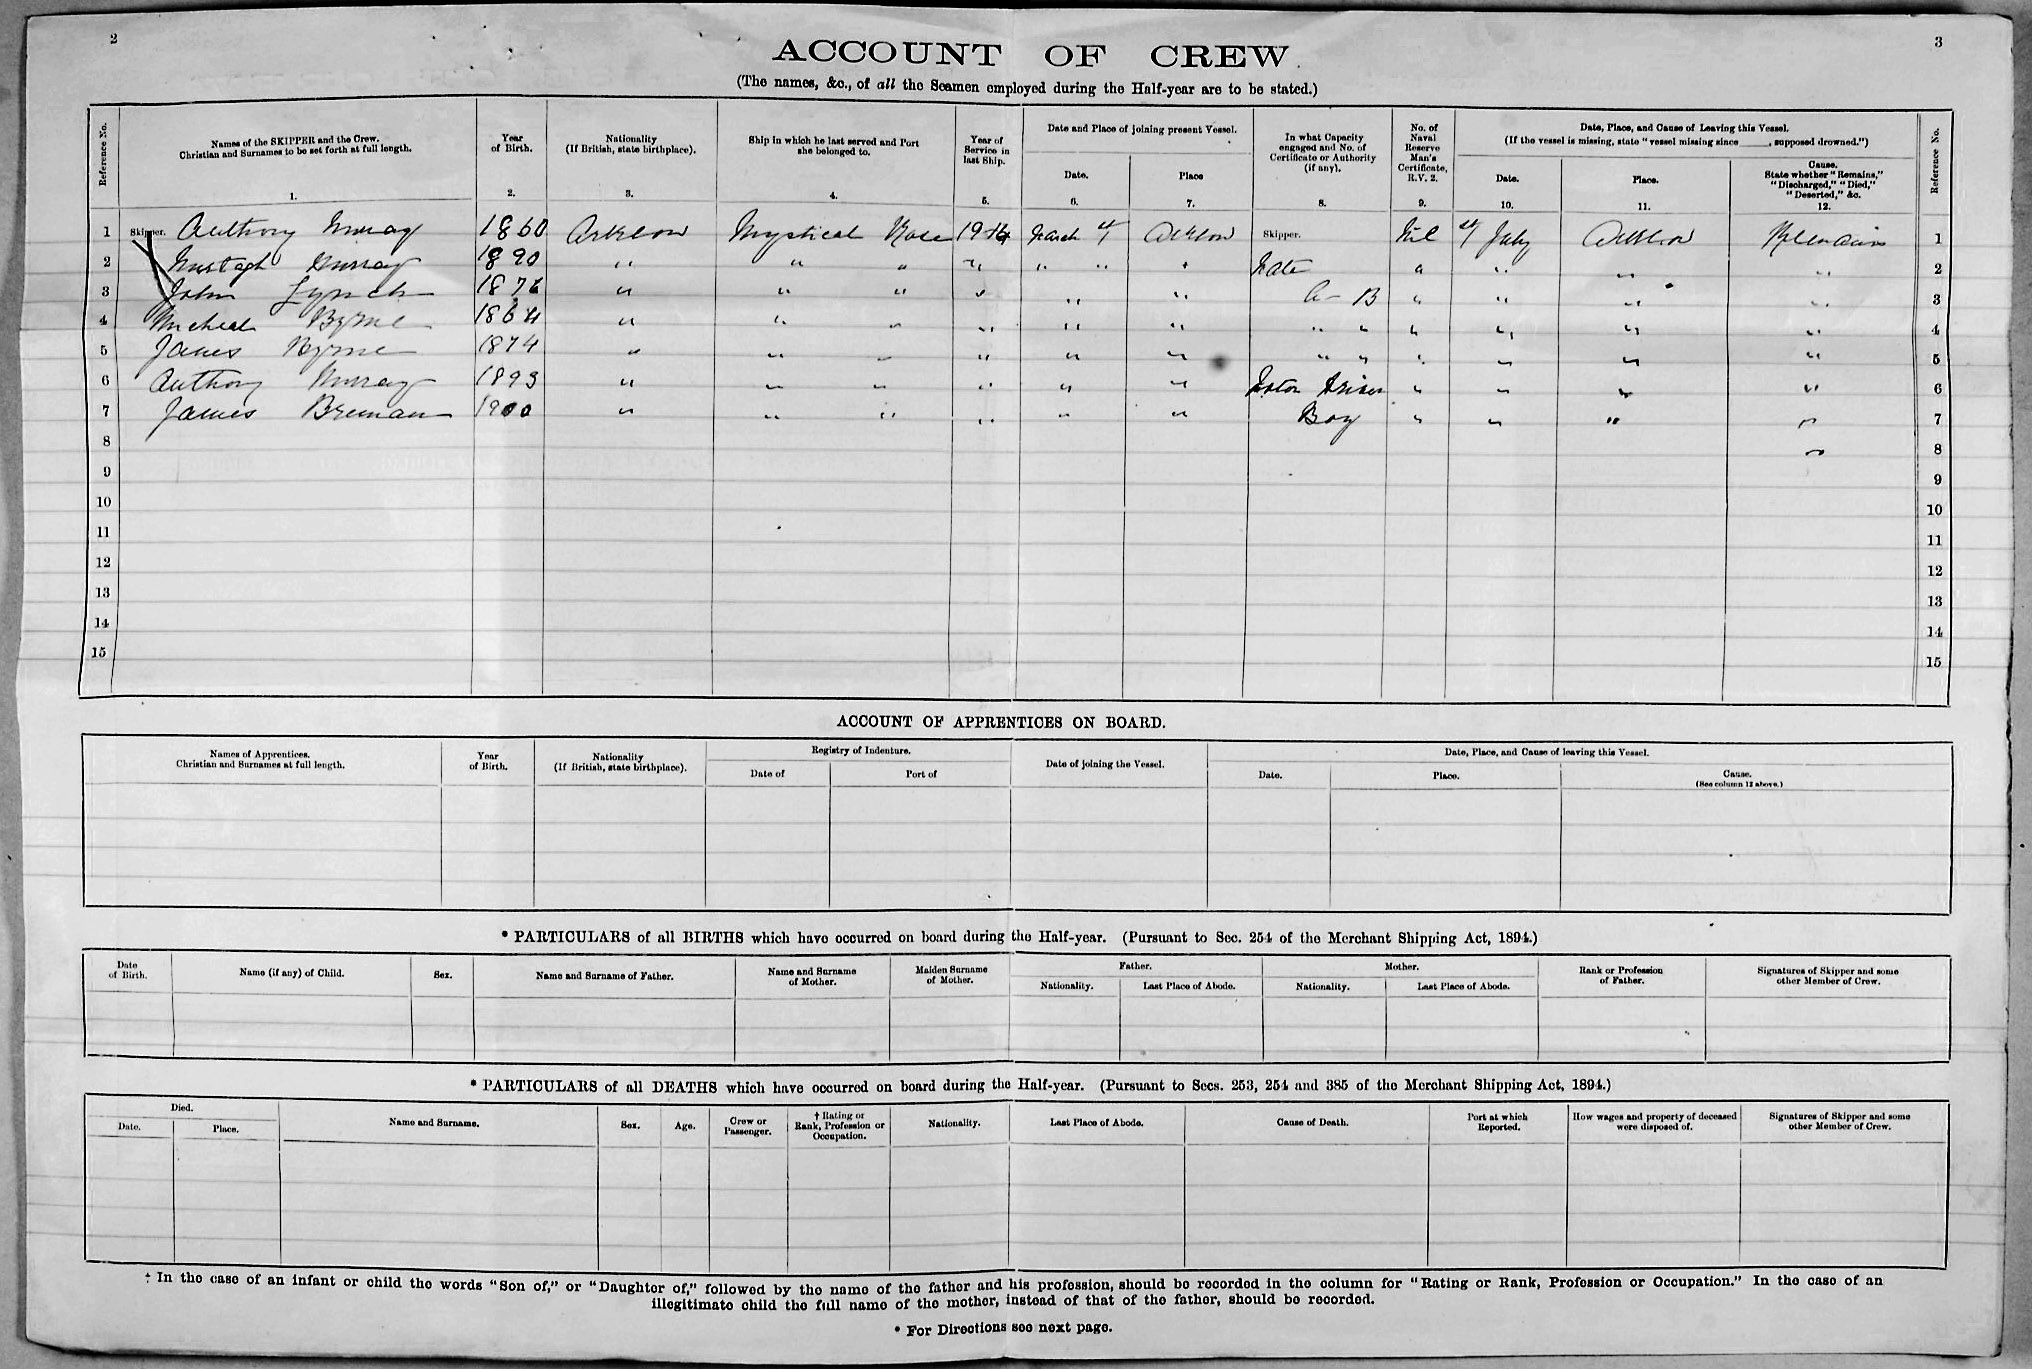 2
3
ACCOUNT OF CREW
(The names, &c., of all the Seamen employed during the Half-year are to be stated.)
Reference No.
Names of the SKIPPER and the Crew.
Christian and Surnames to be set forth at full length.
1.
Year
of Birth.
2.
Nationality
(If British, state birthplace).
3.
Ship in which he last served and Port
she belonged to.
4.
Year of
Service in
last Ship.
5.
Date and Place of joining present Vessel.
Date.
6.
Place
7.
In what Capacity
engaged and No. of
Certificate or Authority
(if any).
8.
No. of
Naval
Reserve
Man's
Certificate,
R.V. 2.
9.
Date, Place, and Cause of Leaving this Vessel.
(If the vessel is missing, state "vessel missing since ____, supposed drowned.")
Date.
10.
Place.
11.
Cause.
State whether "Remains,"
"Discharged," "Died,"
"Deserted," &c.
12.
Reference No.
1 Skipper. Anthony Murray 1860 Arklow Mystical Rose 1914 March 4 Arklow Skipper. Nil 4 July Arklow Remains 1
2 Murtagh Murray 1890 " " " " " " " Mate " " " " 2
3 John Lynch 1876 " " " " " " A B " " " " 3
4 Micheal Byrne 1864 " " " " " " " " " " " " 4
5 James Byrne 1874 " " " " " " " " " " " " 5
6 Anthony Murray 1893 " " " " " " Motor Driver " " " " 6
7 James Brennan 1900 " " " " " " Boy " " " " 7
8 " 8
9 9
10 10
11 11
12 12
13 13
14 14
15 15
ACCOUNT OF APPRENTICES ON BOARD.
Names of Apprentices.
Christian and Surnames at full length.
Year
of Birth.
Nationality
(If British, state birthplace).
Registry of Indenture.
Date of
Port of
Date of joining the Vessel.
Date, Place, and Cause of leaving this Vessel.
Date.
Place.
Cause.
(See column 12 above.)
* PARTICULARS of all BIRTHS which have occurred on board during the Half-year. (Pursuant to Sec. 254 of the Merchant Shipping Act, 1894.)
Date
of Birth.
Name (if any) of Child.
Sex.
Name and Surname of Father.
Name and Surname
of Mother.
Maiden Surname
of Mother.
Father.
Nationality.
Last Place of Abode.
Mother.
Nationality.
Last Place of Abode.
Rank or Profession
of Father.
Signatures of Skipper and some
other Member of Crew.
* PARTICULARS of all DEATHS which have occurred on board during the Half-year. (Pursuant to Secs. 253, 254 and 385 of the Merchant Shipping Act, 1894.)
Died.
Date.
Place.
Name and Surname.
Sex.
Age.
Crew or
Passenger.
† Rating or
Rank, Profession or
Occupation.
Nationality.
Last Place of Abode.
Cause of Death.
Port at which
Reported.
How wages and property of deceased
were disposed of.
Signatures of Skipper and some
other Member of Crew.
† In the case of an infant or child the words "Son of," or "Daughter of," followed by the name of the father and his profession, should be recorded in the column for "Rating or Rank, Profession or Occupation." In the case of an
illegitimate child the full name of the mother, instead of that of the father, should be recorded.
* For Directions see next page.